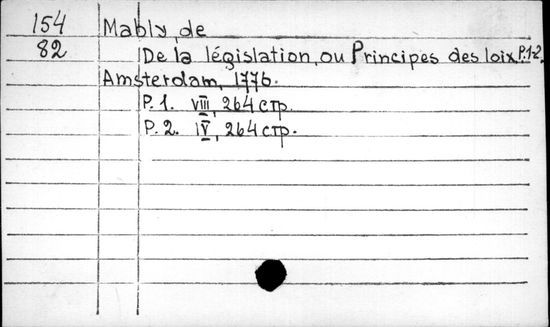 154 Mably, de
82 De la législation, ou Principes des loix. P.1-2.
Amsterdam, 1776.
P. 1. VIII, 264 стр.
P. 2. IV, 264 стр.